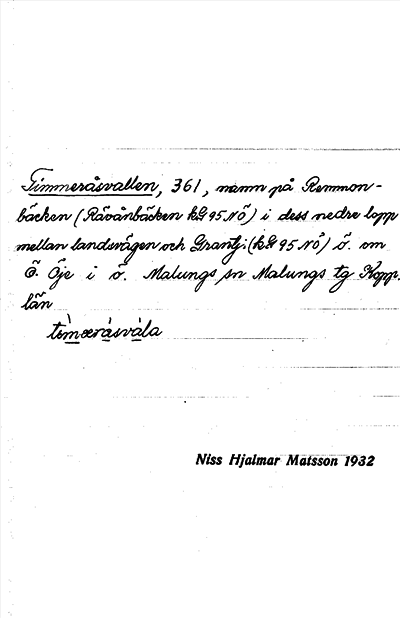 Timmeråsvallen, 361, namn på Remmon-
bäcken (Råvånbäcken kG 95 NÖ) i dess nedre lopp
mellan landsvägen och Grantj: (kG 95 NÖ) ö. om
Ö. Öje i ö. Malungs sn Malungs tg Kopp.
län
timæråsvàla
Niss Hjalmar Matsson 1932